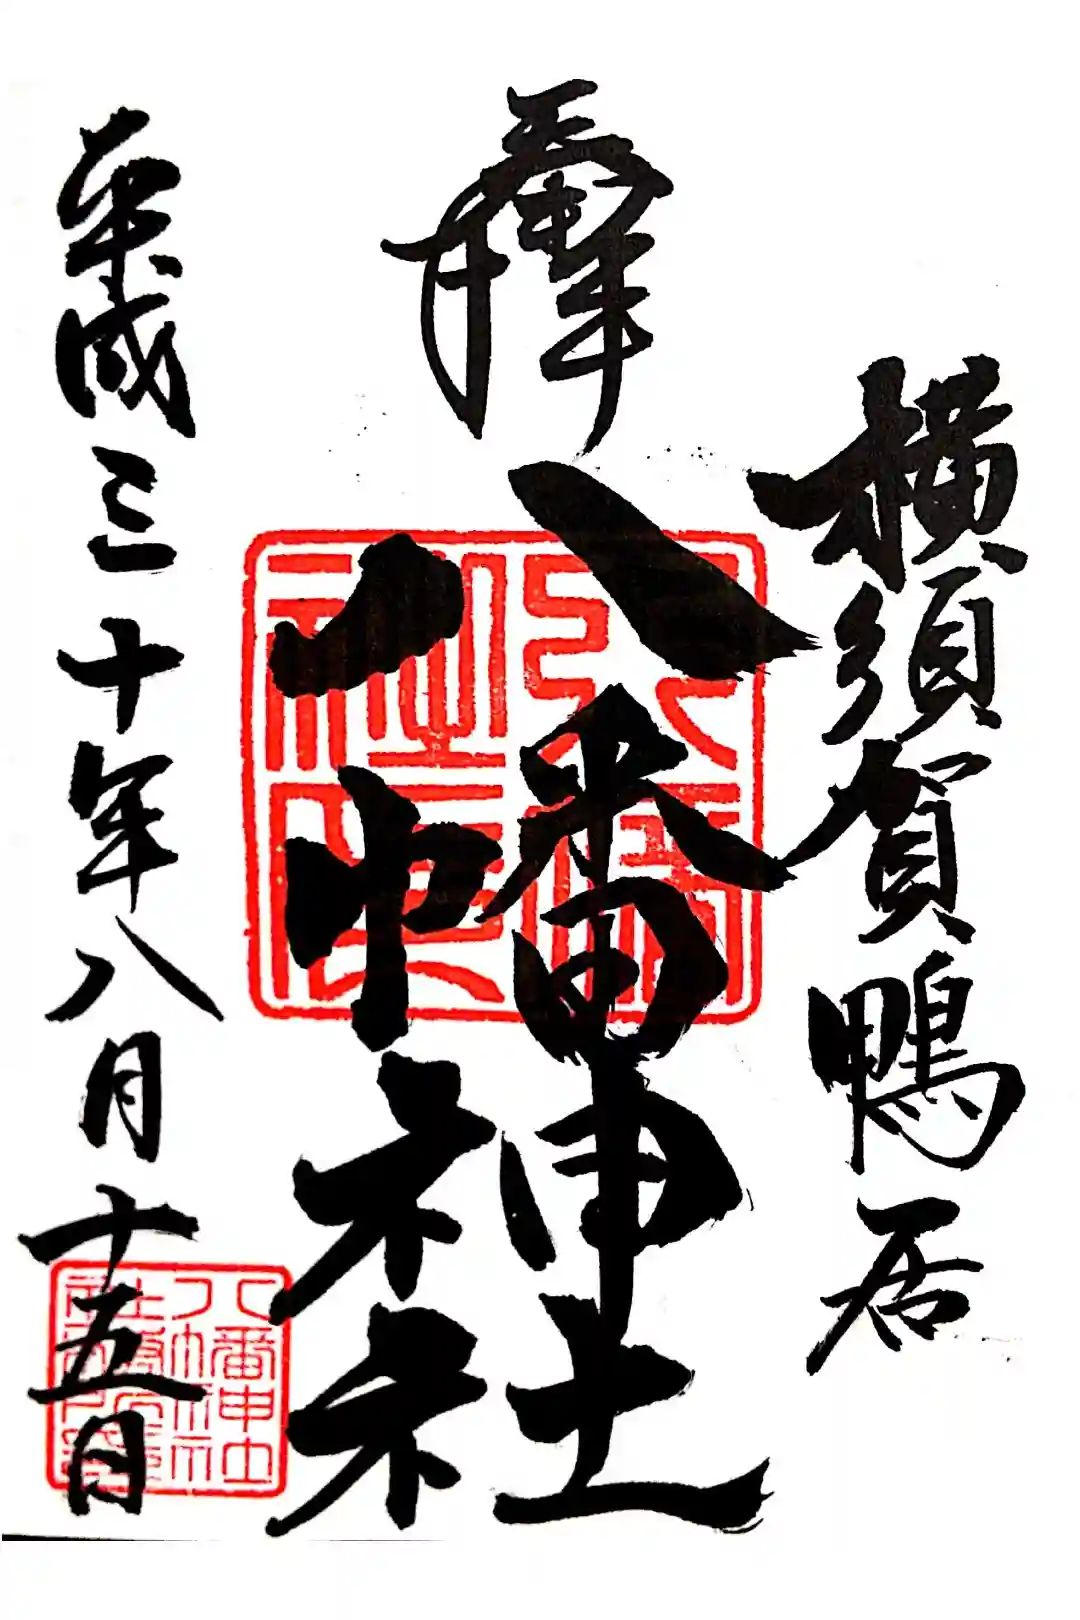 横須賀鴨居
奉拝
八幡神社
平成三十年八月十五日
八幡神社
社務所